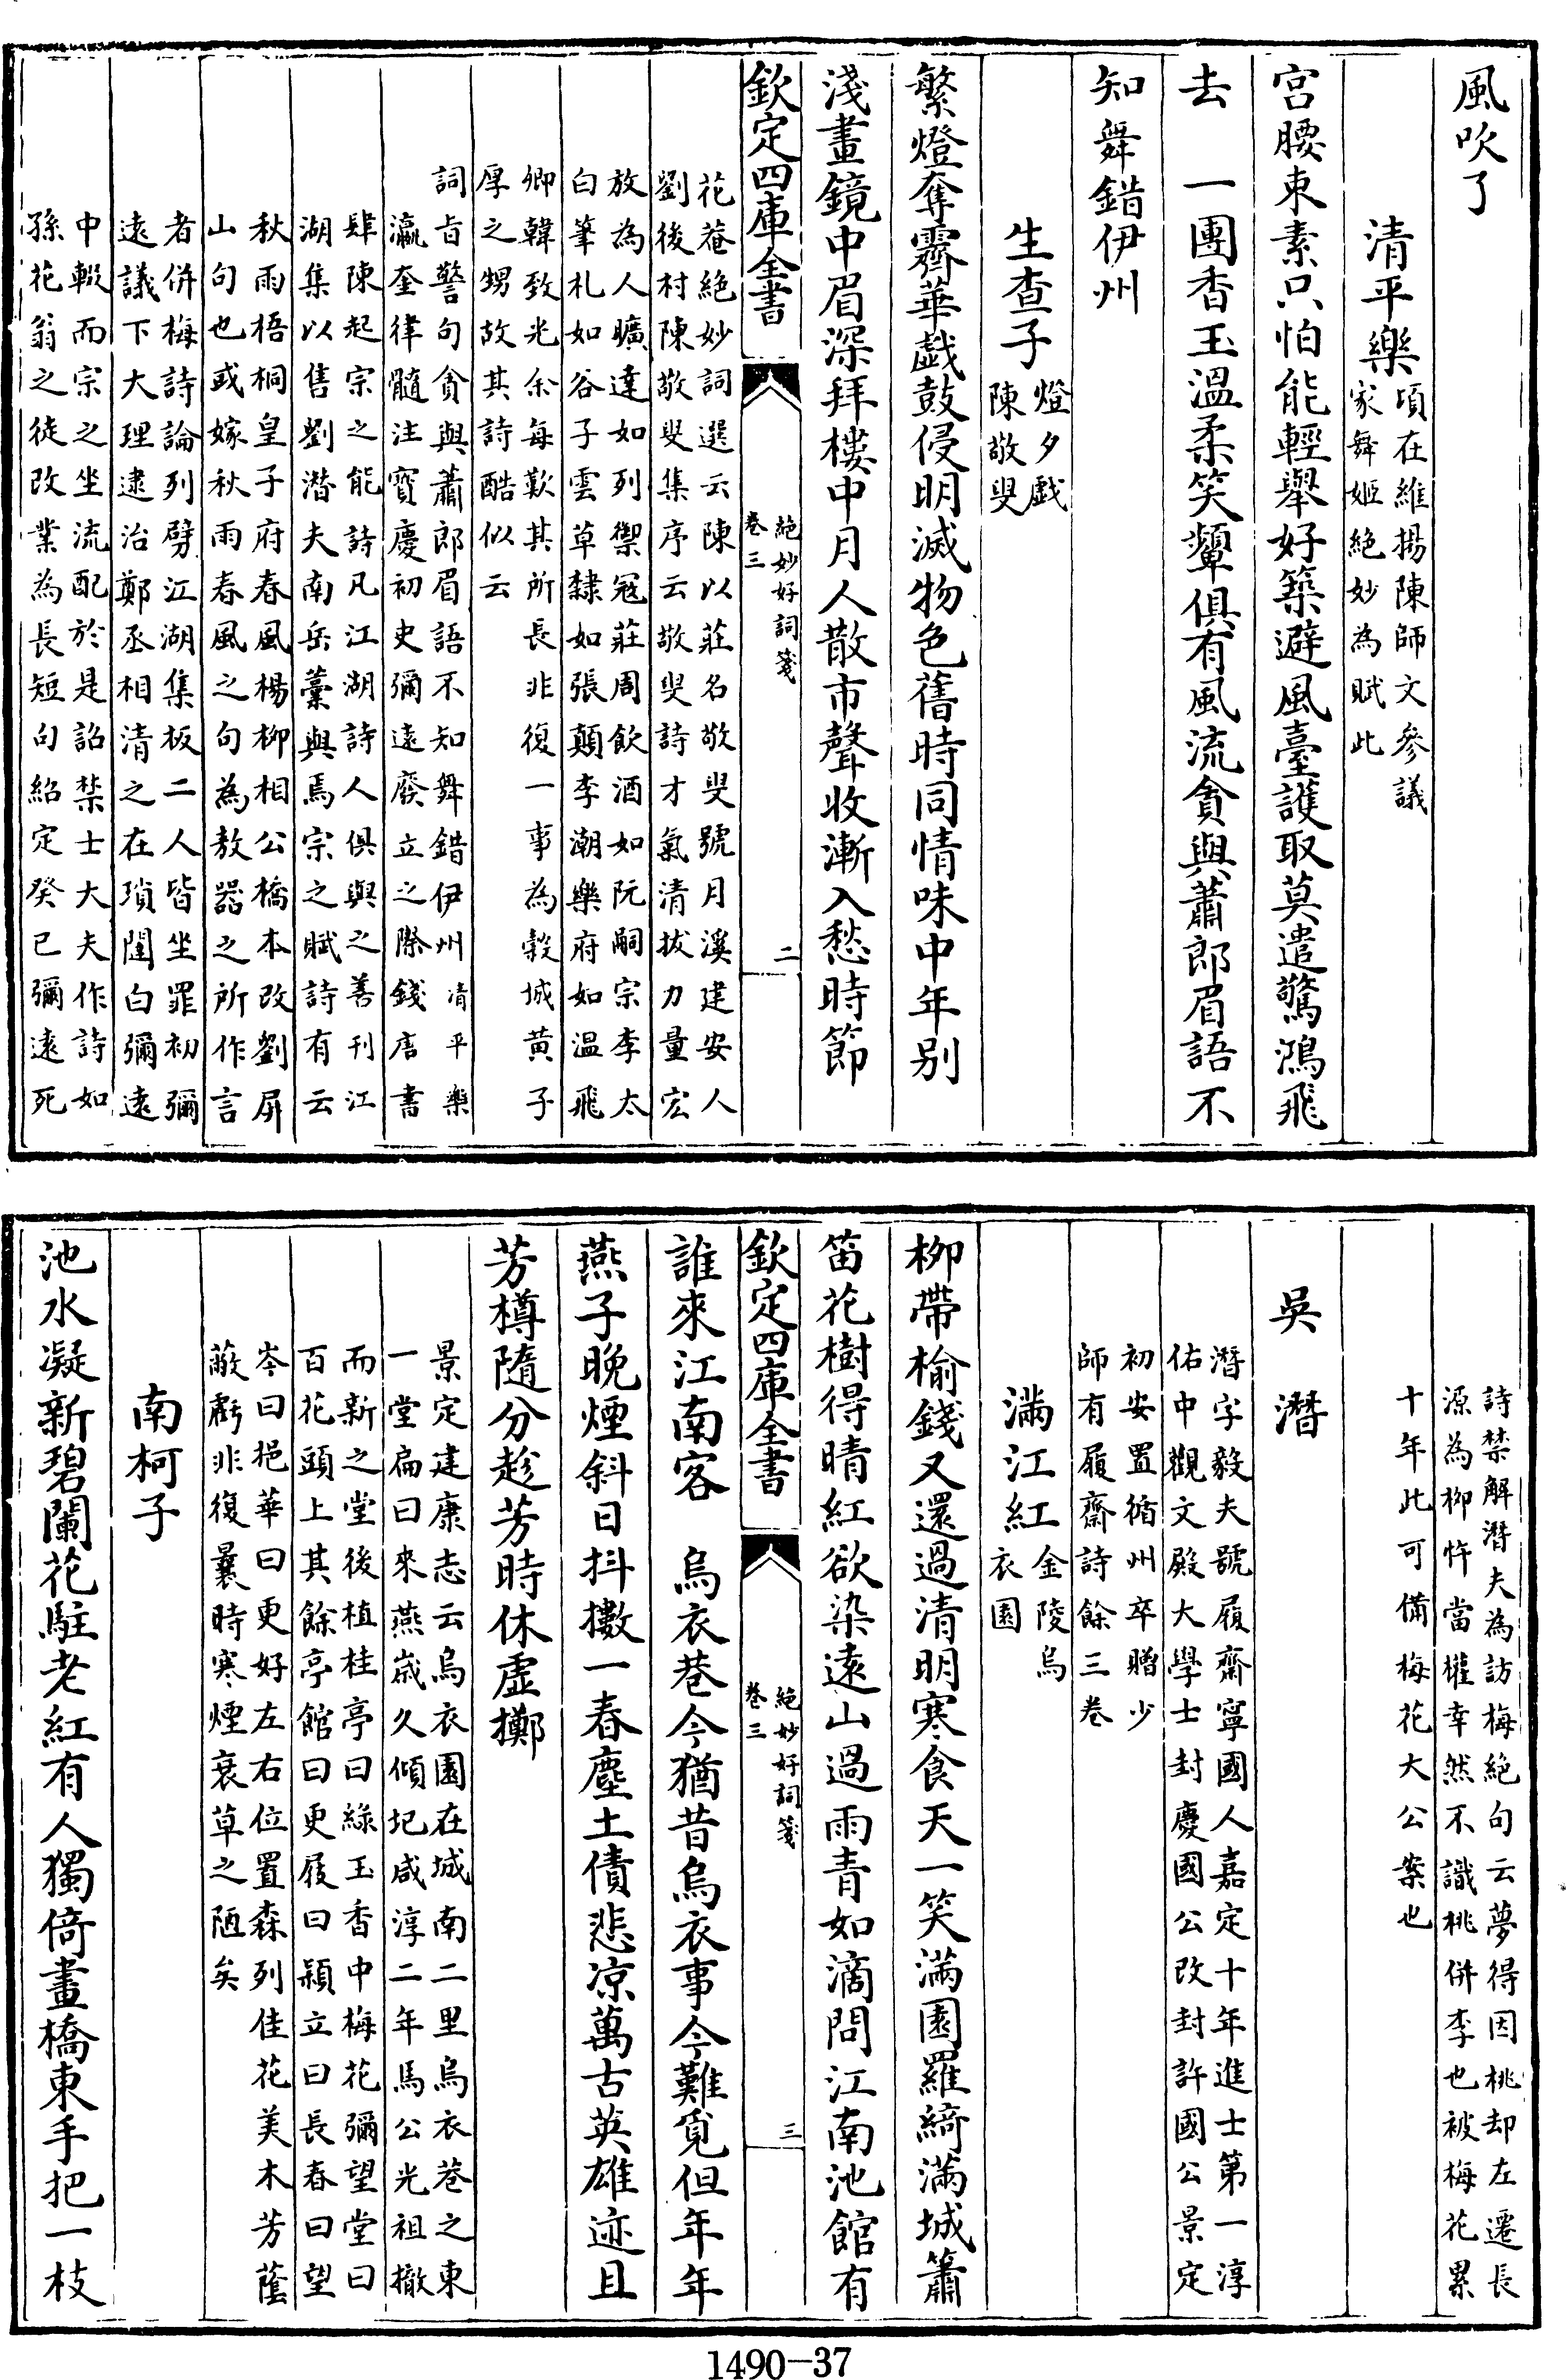 風吹了
清平樂
頃在維揚陳師文參議
家舞姬絶妙為賦此
宫腰束素只怕能輕舉好築避風臺護取莫遣驚鴻飛
去　一團香玉温柔笑顰俱有風流貪與蕭郎眉語不
知舞錯伊州
生查子
燈夕戲
陳敬叟
繁燈奪霽華戲鼓侵明滅物色舊時同情味中年别
淺畫鏡中眉深拜樓中月人散市聲收漸入愁時節
欽定四庫全書
絶妙好詞箋
卷三
二
花菴絶妙詞選云陳以莊名敬叟號月溪建安人
劉後村陳敬叟集序云敬叟詩才氣清拔力量宏
放為人曠達如列禦冦莊周飲酒如阮嗣宗李太
白筆札如谷子雲草隸如張顛李潮樂府如温飛
卿韓致光余每歎其所長非復一事為穀城黄子
厚之甥故其詩酷似云
詞旨警句貪與蕭郎眉語不知舞錯伊州清平樂
瀛奎律髓注寳慶初史彌遠廢立之際錢唐書
肆陳起宗之能詩凡江湖詩人俱與之善刊江
湖集以售劉潛夫南岳藁與焉宗之賦詩有云
秋雨梧桐皇子府春風楊柳相公橋本改劉屏
山句也或嫁秋雨春風之句為敖器之所作言
者併梅詩論列劈江湖集板二人皆坐罪初彌
遠議下大理逮治鄭丞相清之在瑣闥白彌遠
中輟而宗之坐流配於是詔禁士大夫作詩如
孫花翁之徒改業為長短句紹定癸已彌遠死
詩禁解潛夫為訪梅絶句云夢得因桃却左遷長
源為柳忤當權幸然不識桃併李也被梅花累
十年此可備梅花大公案也
吳　潛
潛字毅夫號履齋寧國人嘉定十年進士第一淳
佑中觀文殿大學士封慶國公改封許國公景定
初安置循州卒贈少
師有履齋詩餘三卷
滿江紅
金陵烏
衣園
柳帶榆錢又還過清明寒食天一笑滿園羅綺滿城簫
笛花樹得晴紅欲染遠山過雨青如滴問江南池館有
欽定四庫全書
絶妙好詞箋
卷三
三
誰來江南客　烏衣巷今猶昔烏衣事今難覓但年年
燕子晚煙斜日抖擻一春塵土債悲凉萬古英雄迹且
芳樽隨分趁芳時休虚擲
景定建康志云烏衣園在城南二里烏衣巷之東
一堂扁曰來燕歲久傾圮咸淳二年馬公光祖撤
而新之堂後植桂亭曰緑玉香中梅花彌望堂曰
百花頭上其餘亭館曰更屐曰潁立曰長春曰望
岑曰挹華曰更好左右位置森列佳花美木芳蔭
蔽虧非復曩時寒煙衰草之陋矣
南柯子
池水凝新碧闌花駐老紅有人獨倚畫橋東手把一枝
1490—37